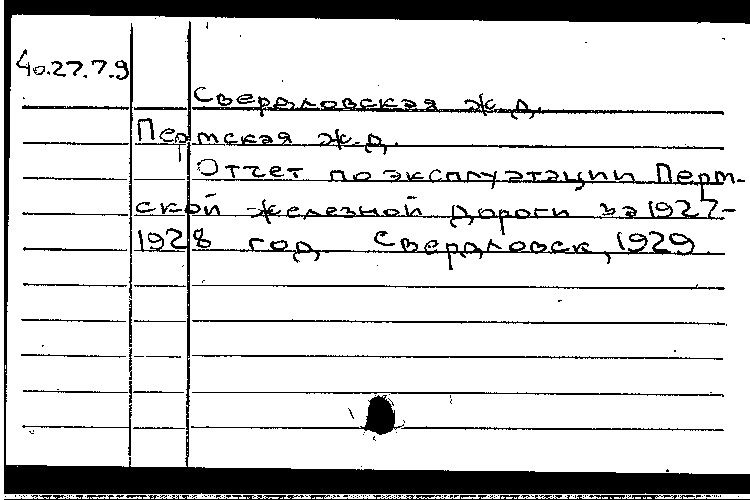 40.27.7.9
Свердловская ж.д.
Пермская ж.д.
Отчет по эксплуатации Перм-
ской железной дороги за 1927-
1928 год. Свердловск, 1929.